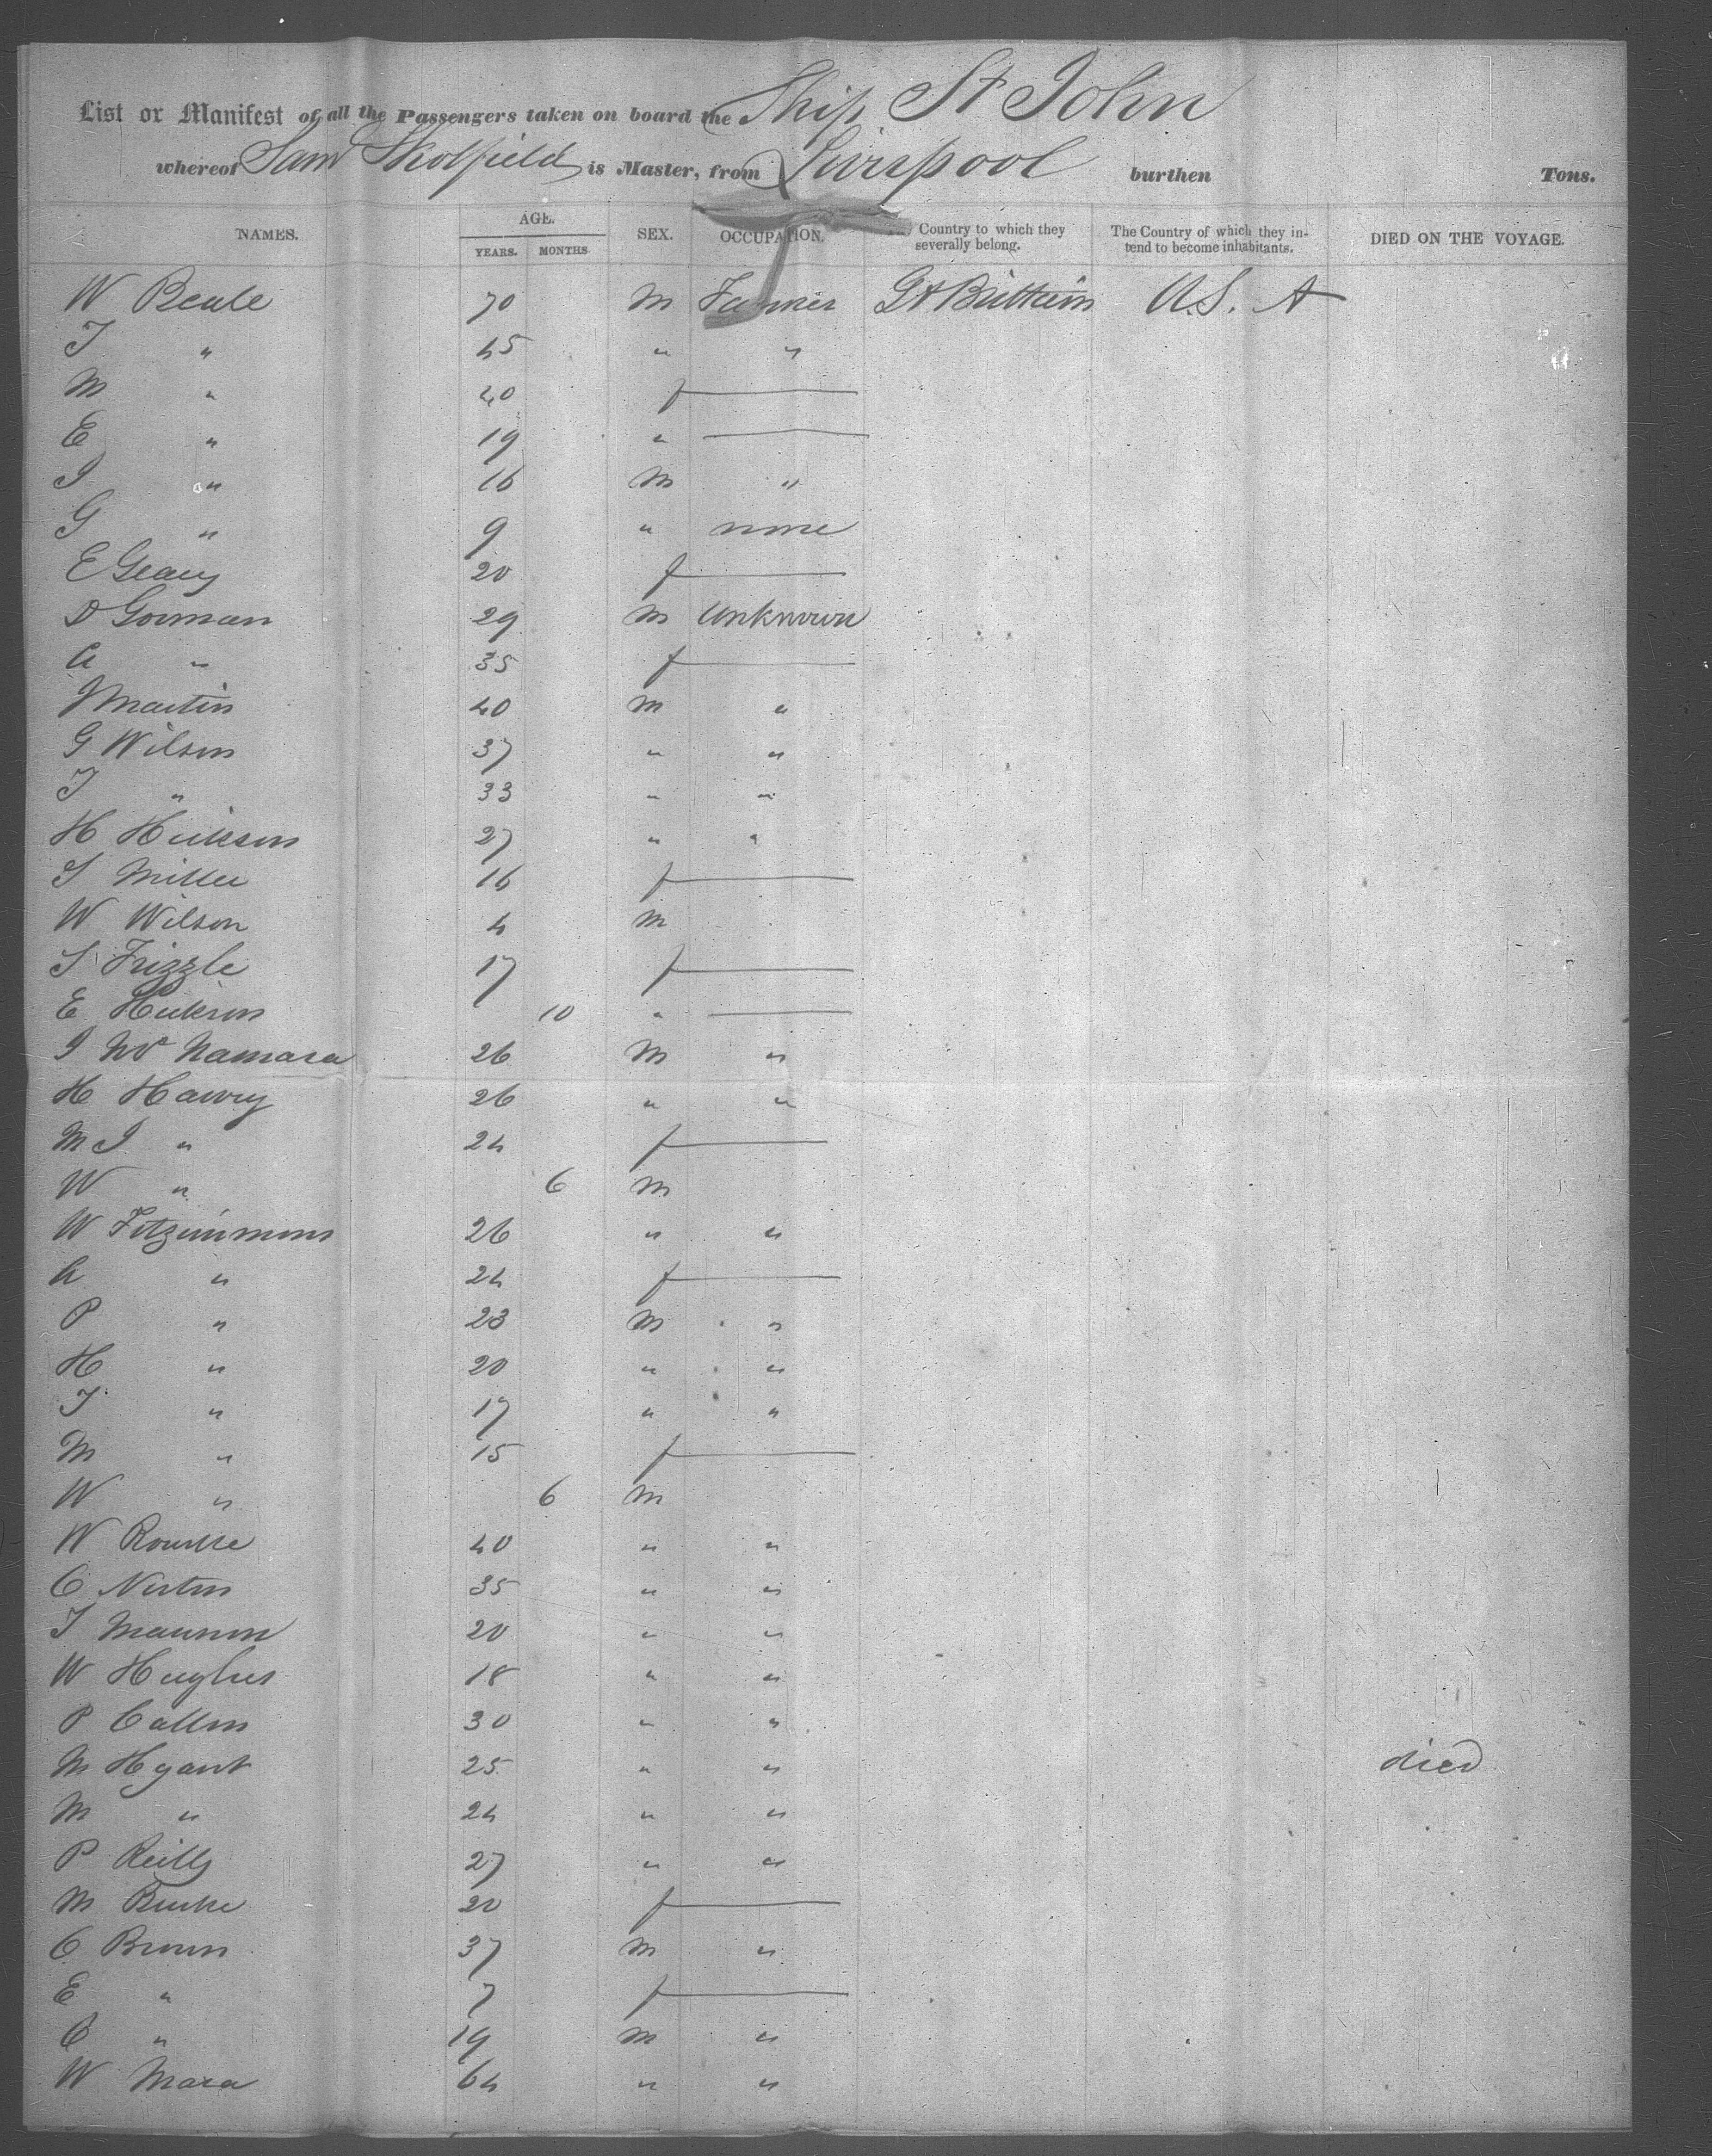 List or Manifest of all the Passengers taken on board the Ship St John
whereof Saml Skolfield is Master, from Liverpool burthen Tons.
NAMES. AGE. YEARS. MONTHS. SEX. OCCUPATION. Country to which they severally belong. The Country of which they intend to become inhabitants. DIED ON THE VOYAGE.
W Beale 70 M Farmer Gt Brittain U.S. A
J " 45 " "
M " 40 f
E " 19 "
J " 16 M "
G " 9 " none
E Geary 20 f
D Gorman 29 M Unknown
A " 35 f
J Martin 40 M "
G Wilson 37 " "
J " 33 " "
H Hickson 27 " "
S Miller 16 f
W Wilson 4 M
S Frizzle 17 f
E Hickson 10 "
J Mc Namara 26 M "
H Harvey 26 " "
M J " 24 f
W " 6 M
W Fitzimmons 26 " "
A " 24 f
P " 23 M "
H " 20 " "
J " 17 " "
M " 15 f
W " 6 M
W Rourke 40 " "
C Norton 35 " "
J 20 " "
W Hughes 18 " "
P 30 " "
M 25 " " died
M " 24 " "
P Reilly 27 " "
M Burke 20 f
C Brown 37 M "
E " 7 f
C " 19 M "
W Mara 64 " "